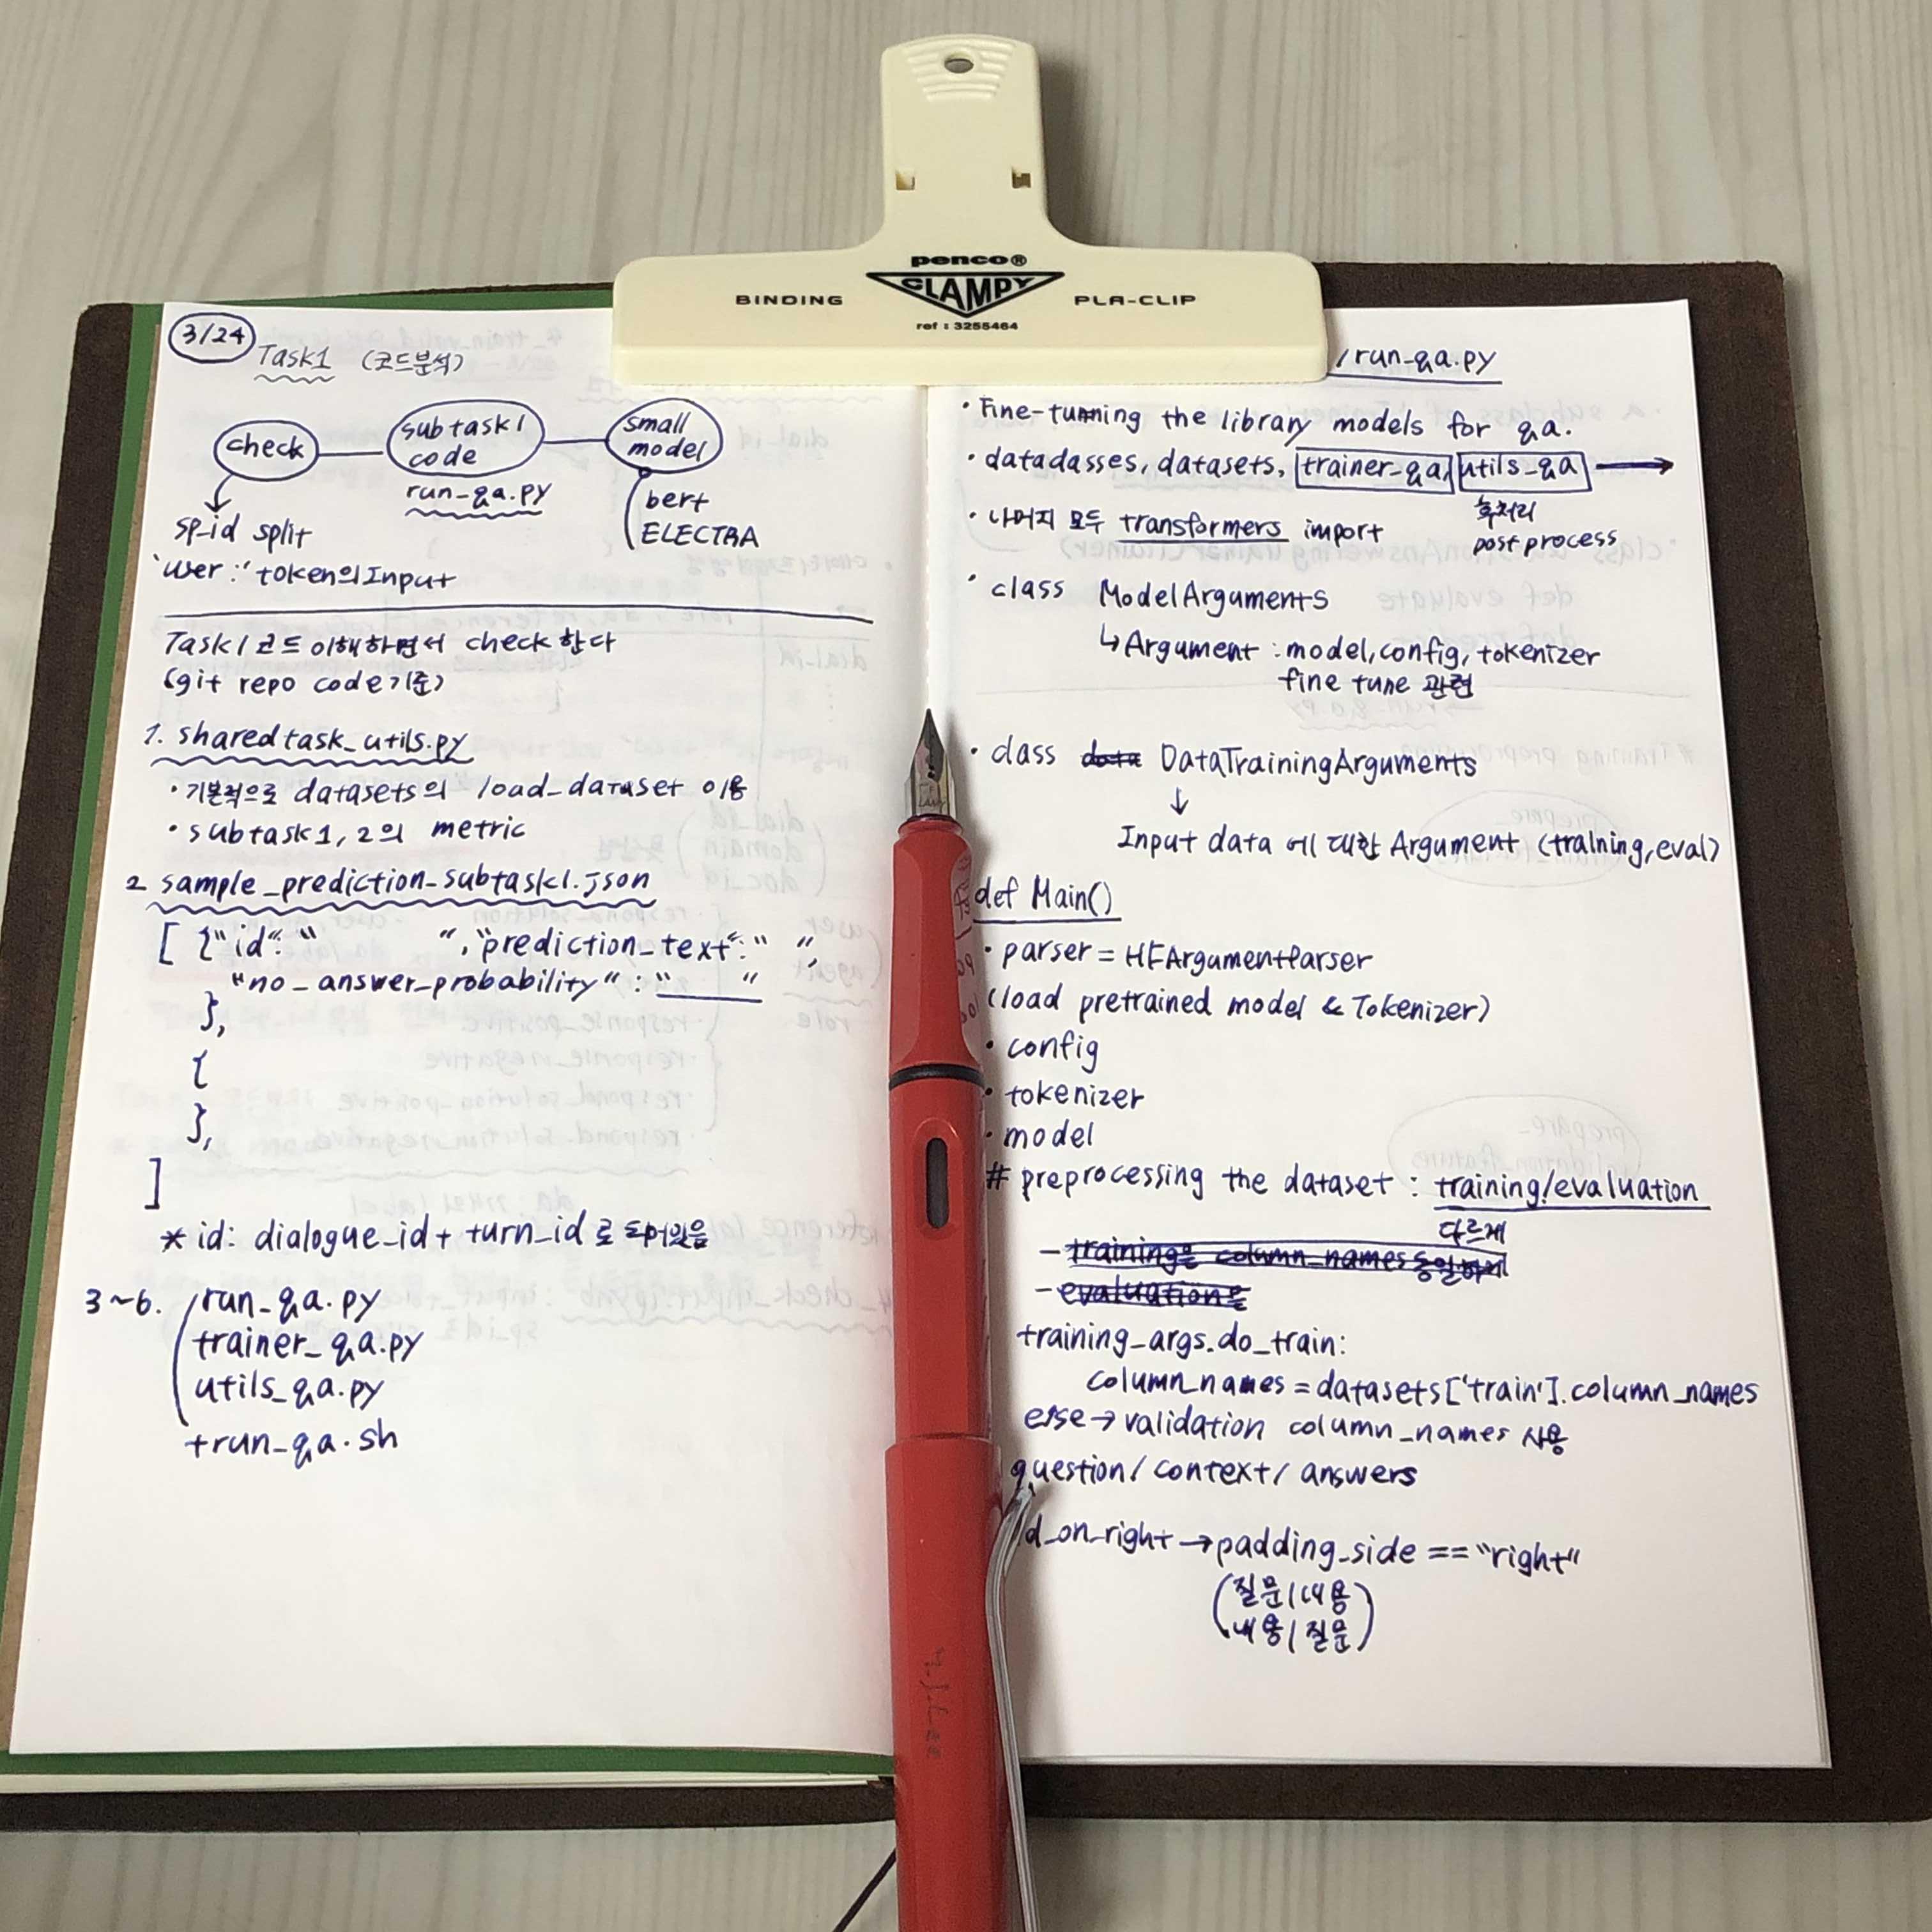 penco®
CLAMPY
BINDING
PLA-CLIP
ref : 3255464
3/24
Task1 (코드분석)
check
subtask1
code
small
model
run_qa.py
bert
ELECTRA
sp_id split
'user :' token의 Input
Task1 코드 이해하면서 check 한다
(git repo code기준)
1. sharedtask_utils.py
· 기본적으로 datasets의 load_dataset 이용
· subtask1, 2의 metric
2 sample_prediction_subtask1.json
[ {"id": " ", "prediction_text": " ",
"no_answer_probability" : " "
},
{
},
]
* id: dialogue_id + turn_id 로 되어있음
3~6. run_qa.py
trainer_qa.py
utils_qa.py
+run_qa.sh
/run_qa.py
· Fine-tunning the library models for qa.
· datadasses, datasets, trainer_qa, utils_qa →
후처리
post process
· 나머지 모두 transformers import
· class ModelArguments
↳ Argument : model, config, tokenizer
fine tune 관련
· class data DataTrainingArguments
↓
Input data 에 대한 Argument (training, eval)
def Main()
· parser = HFArgumentParser
(load pretrained model & Tokenizer)
· config
· tokenizer
· model
# preprocessing the dataset : training/evaluation
다르게
- training은 column_names 동일하게
- evaluation은
training_args.do_train:
column_names = datasets['train'].column_names
else → validation column_names 사용
question / context / answers
d_on_right → padding_side == "right"
(질문 / 내용
내용 / 질문)